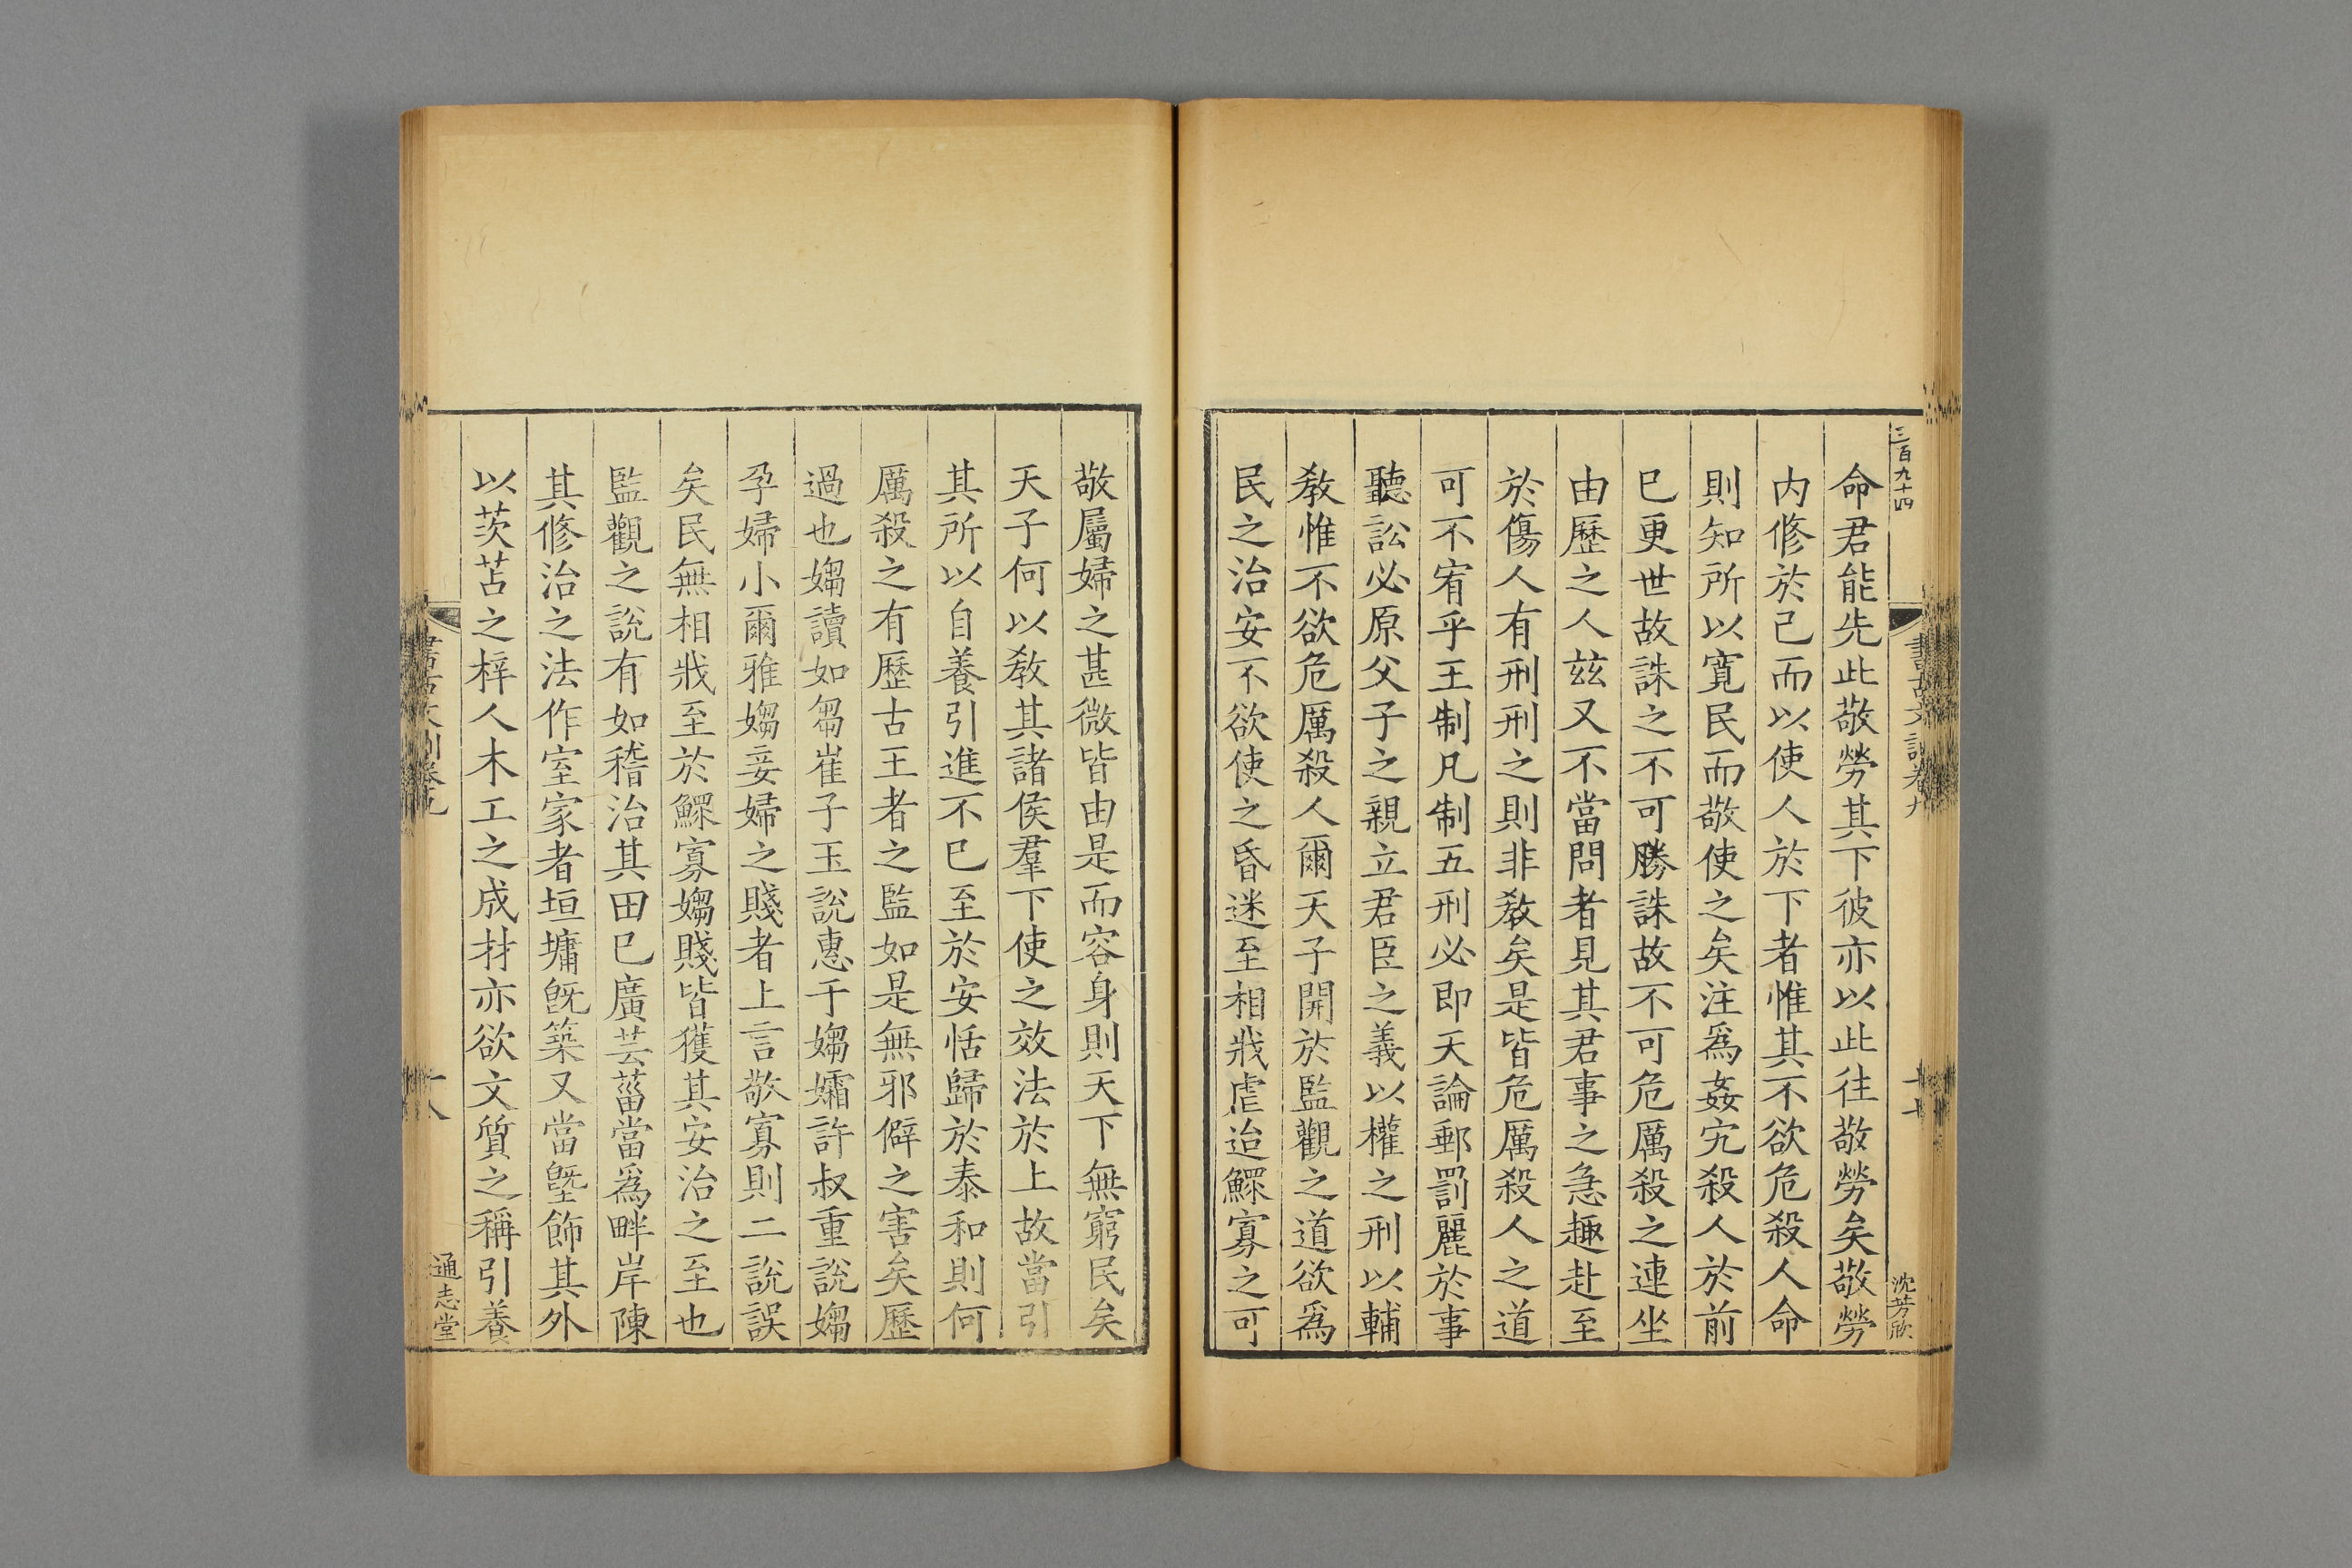 三百九十四
沈芳欣
命君能先此敬勞其下彼亦以此往敬勞矣敬勞
内修於己而以使人於下者惟其不欲危殺人命
則知所以寛民而敬使之矣注爲姦宄殺人於前
已更世故誅之不可勝誅故不可危厲殺之連坐
由歷之人兹又不當問者見其君事之急趣赴至
於傷人有刑刑之則非敎矣是皆危厲殺人之道
可不宥乎王制凡制五刑必即天論郵罰麗於事
聽訟必原父子之親立君臣之義以權之刑以輔
敎惟不欲危厲殺人爾天子開於監觀之道欲爲
民之治安不欲使之昏迷至相戕虐迨鰥寡之可
敬屬婦之甚微皆由是而容身則天下無窮民矣
天子何以敎其諸侯羣下使之效法於上故當引
其所以自養引進不已至於安恬歸於泰和則何
厲殺之有歷古王者之監如是無邪僻之害矣歷
過也媰讀如芻崔子玉說惠于媰孀許叔重說媰
孕婦小爾雅媰妾婦之賤者上言敬寡則二說誤
矣民無相戕至於鰥寡媰賤皆獲其安治之至也
監觀之說有如稽治其田已廣芸菑當爲畔岸陳
其修治之法作室家者垣墉旣築又當塈飾其外
以茨苫之梓人木工之成材亦欲文質之稱引養
通志堂